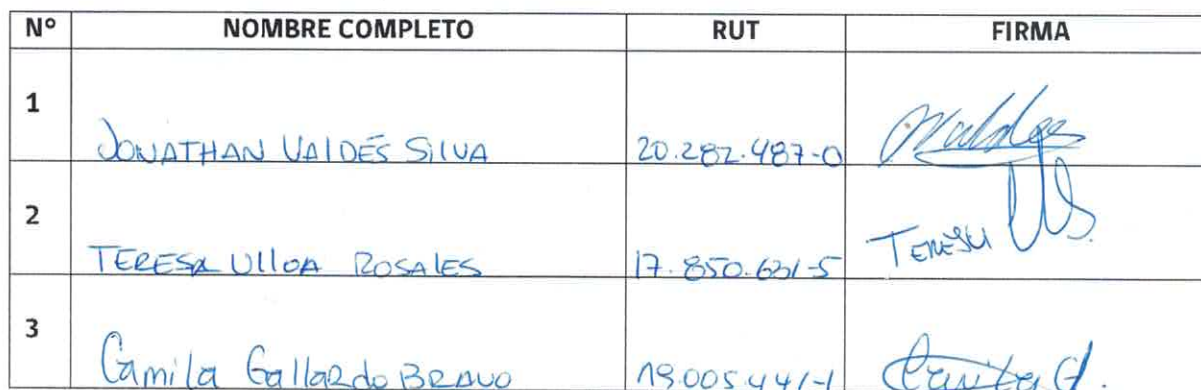 Nº NOMBRE COMPLETO RUT FIRMA
1 JONATHAN VALDÉS SILVA 20.282.487-0
2 TERESA UlloA ROSALES 17.850.631-5 TERESA
3 Camila Gallardo BRAVO 19.005.441-1 Camila G.